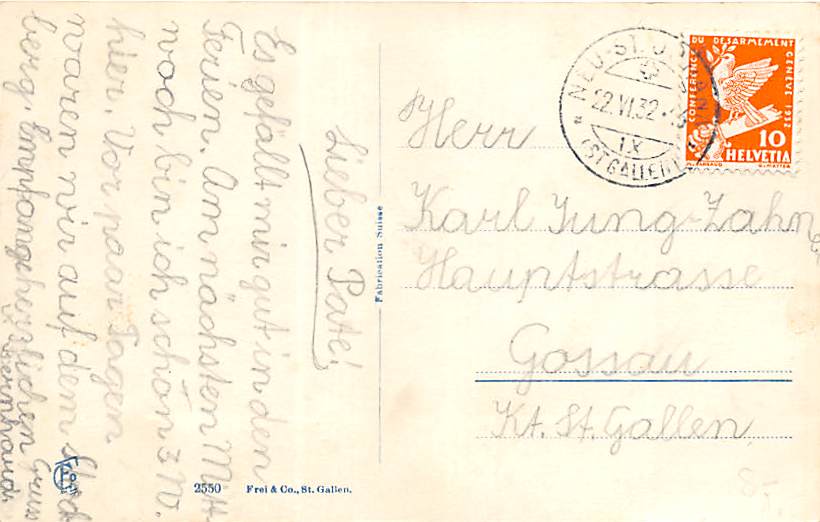 Lieber Pate!
Es gefällt mir gut in den
Ferien. Am nächsten Mitt-
woch bin ich schon 3 W.
hier. Vor paar Tagen
waren wir auf dem
berg. Empfange herzlichen Gruss
Fabrication Suisse
2550 Frei & Co., St. Gallen.
NEU-ST. JOHANN
22.VI.32
IX
(ST GALLEN)
CONFERENCE DU DESARMEMENT GENEVE 1932
10
HELVETIA
Herr
Karl Jung-Zahner
Hauptstrasse
Gossau
Kt. St. Gallen